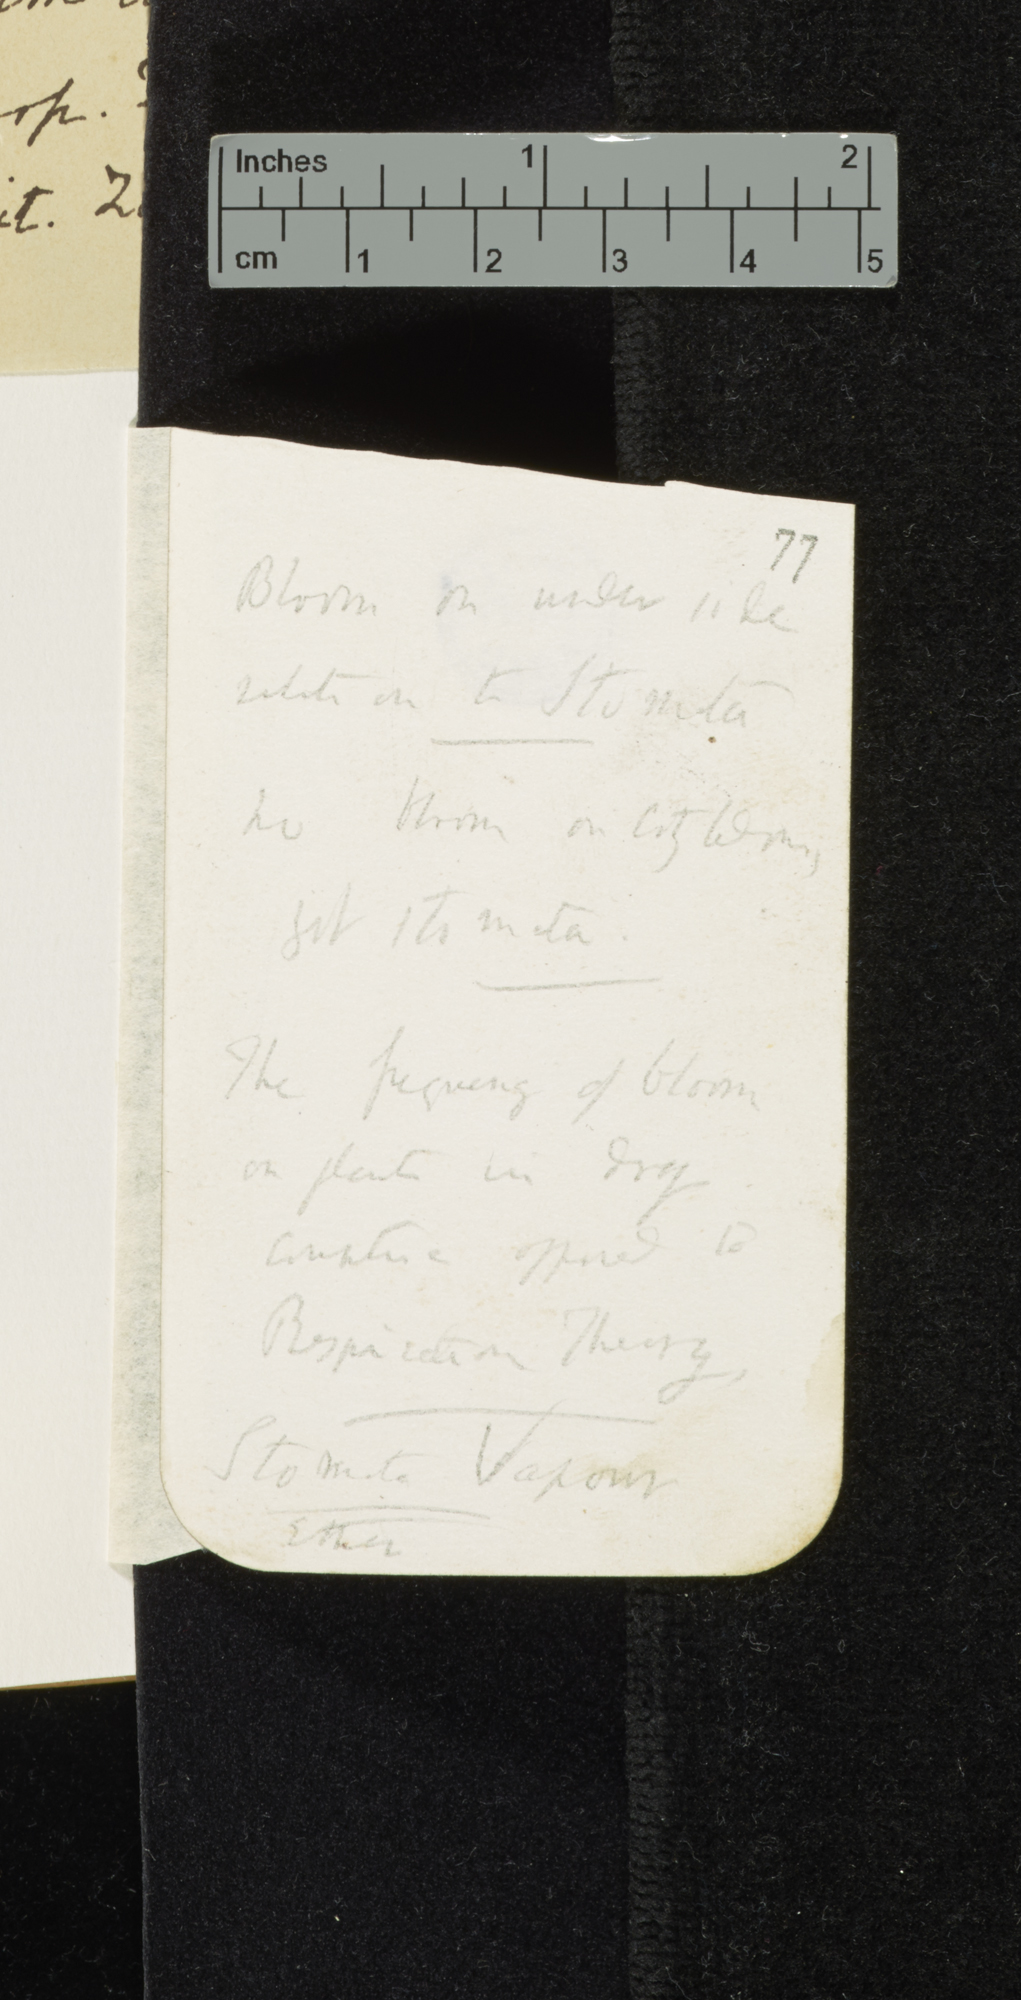 op.
it.
Inches 1 2
cm 1 2 3 4 5
77
Bloom on under side
relation to Stomata
No bloom on Cotyledons,
yet stomata.
The frequency of bloom
on plants in dry
countries opposed to
Respiration Theory,
Stomata Vapour
Ether